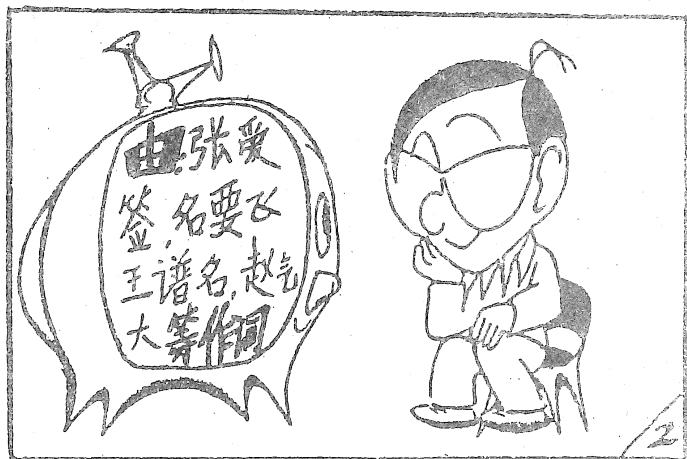 由:张爱
签,名要飞
王谱名,赵气
大等作词
2